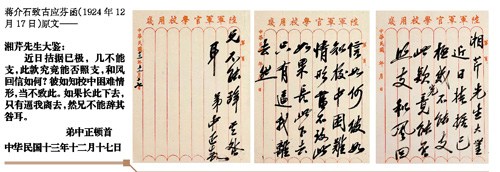 蒋介石致古应芬函(1924年12
月17日)原文——
湘芹先生大鉴:
近日拮据已极,几不能
支,此款究竟能否照支,和风
回信如何?彼如知校中困难情
形,当不致此。如果长此下去,
只有逼我离去,然兄不能辞其
咎耳。
弟中正顿首
中华民国十三年十二月十七日
湘芹先生大鑒
近日拮据已
極幾不能支
此款究竟能否
照支和風回
信如何彼如
知校中困難
情形當不致
此如果長此下
去只有逼我離
去然
兄不能辭其咎
耳
弟中正頓首